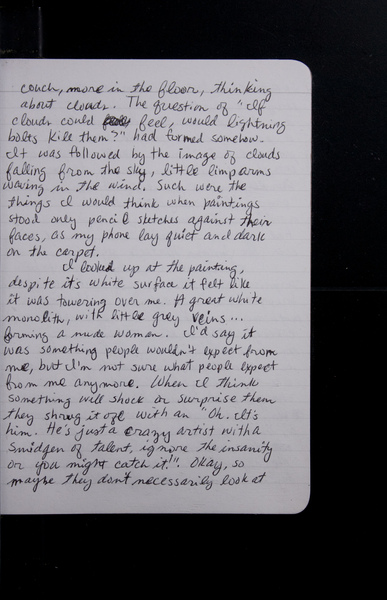 couch, more in the floor, thinking
about clouds. The question of "If
clouds could feel, would lightning
bolts kill them?" had formed somehow.
It was followed by the image of clouds
falling from the sky, little limp arms
waving in the wind. Such were the
things I would think when paintings
stood only pencil sketches against their
faces, as my phone lay quiet and dark
on the carpet.
I looked up at the painting,
despite its white surface it felt like
it was towering over me. A great white
monolith, with little grey veins...
forming a nude woman. I'd say it
was something people wouldn't expect from
me, but I'm not sure what people expect
from me anymore. When I think
something will shock or surprise them
they shrug it off with an "Oh. It's
him. He's just a crazy artist with a
smidgen of talent, ignore the insanity
or you might catch it!". Okay, so
maybe they don't necessarily look at